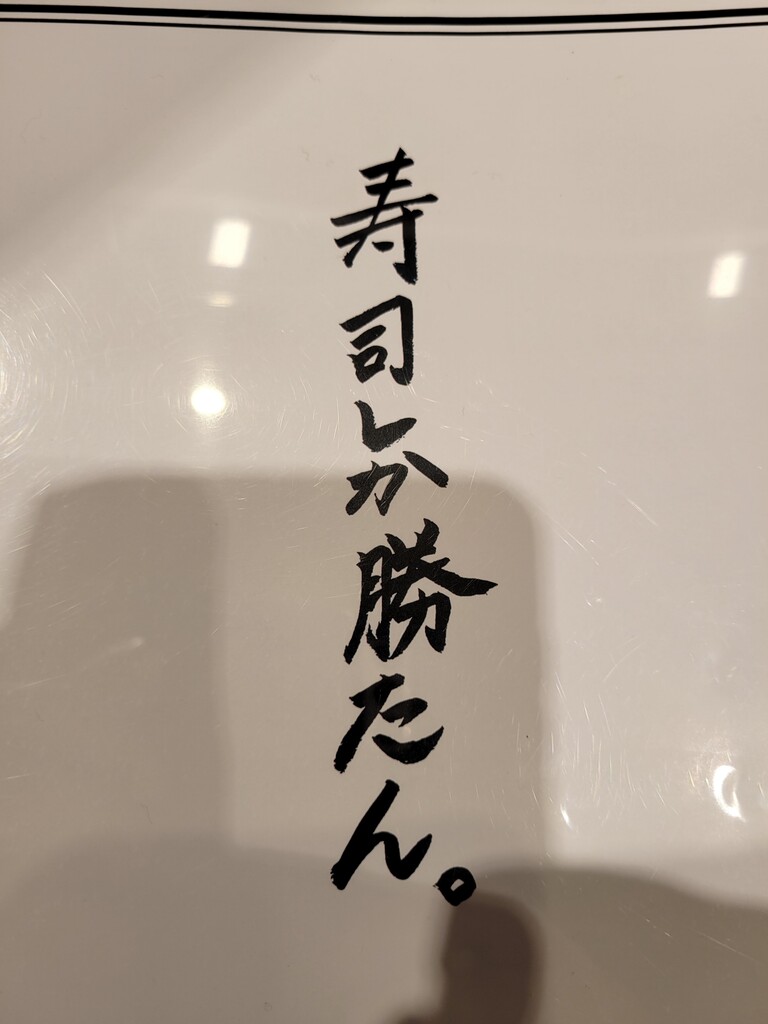 寿司しか勝たん。